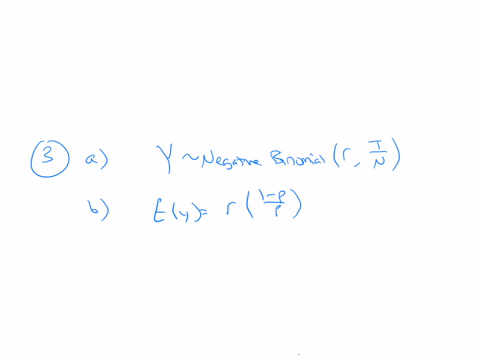 3 a) Y ~ Negative Binomial (r, T/N)
b) E(y) = r (1-p/p)